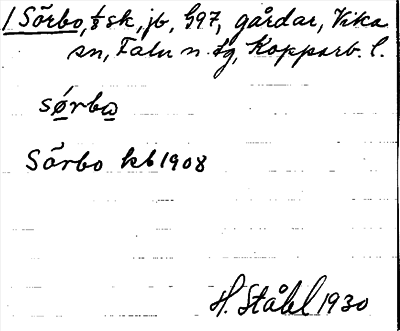 1 Sörbo, ⅛ sk, jb, G97, gårdar, Vika
sn, Falu n. fg, Kopparb. l.
sørba
Sörbo kb 1908
H. Ståhl 1930